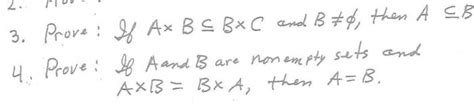 3. Prove: If A×B ⊆ B×C and B ≠ ϕ, then A ⊆ B
4. Prove: If A and B are nonempty sets and
A×B = B×A, then A=B.